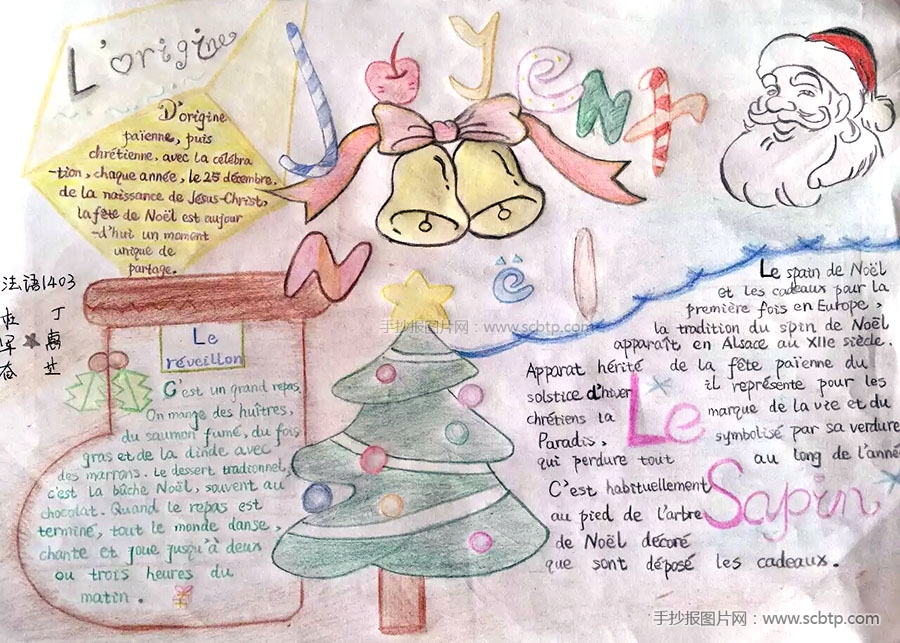 L'origine
D'origine
païenne, puis
chrétienne, avec la célébra
-tion, chaque année, le 25 décembre,
de la naissance de Jésus-Christ,
la fête de Noël est aujour
-d'hui un moment
unique de
partage.
Joyent
N ë l
法语1403
丁
惠
Le
réveillon
C'est un grand repas
On mange des huîtres,
du saumon fumé, du fois
gras et de la dinde avec
des marrons. Le dessert tradionnel,
c'est la bûche Noël, souvent au
chocolat. Quand le repas est
terminé, tout le monde danse,
chante et joue jusqu'à deux
ou trois heures du
matin.
Le spain de Noël
et les cadeaux pour la
première fois en Europe,
la tradition du spin de Noël
apparaît en Alsace au XIIe siècle.
Apparat hérité de la fête païenne du
solstice d'hiver il représente pour les
chrétiens la marque de la vie et du
Paradis, symbolisé par sa verdure
qui perdure tout au long de l'année
Le
Sapin
C'est habituellement
au pied de l'arbre
de Noël décoré
que sont déposé les cadeaux.
手抄报图片网：www.scbtp.com
手抄报图片网：www.scbtp.com